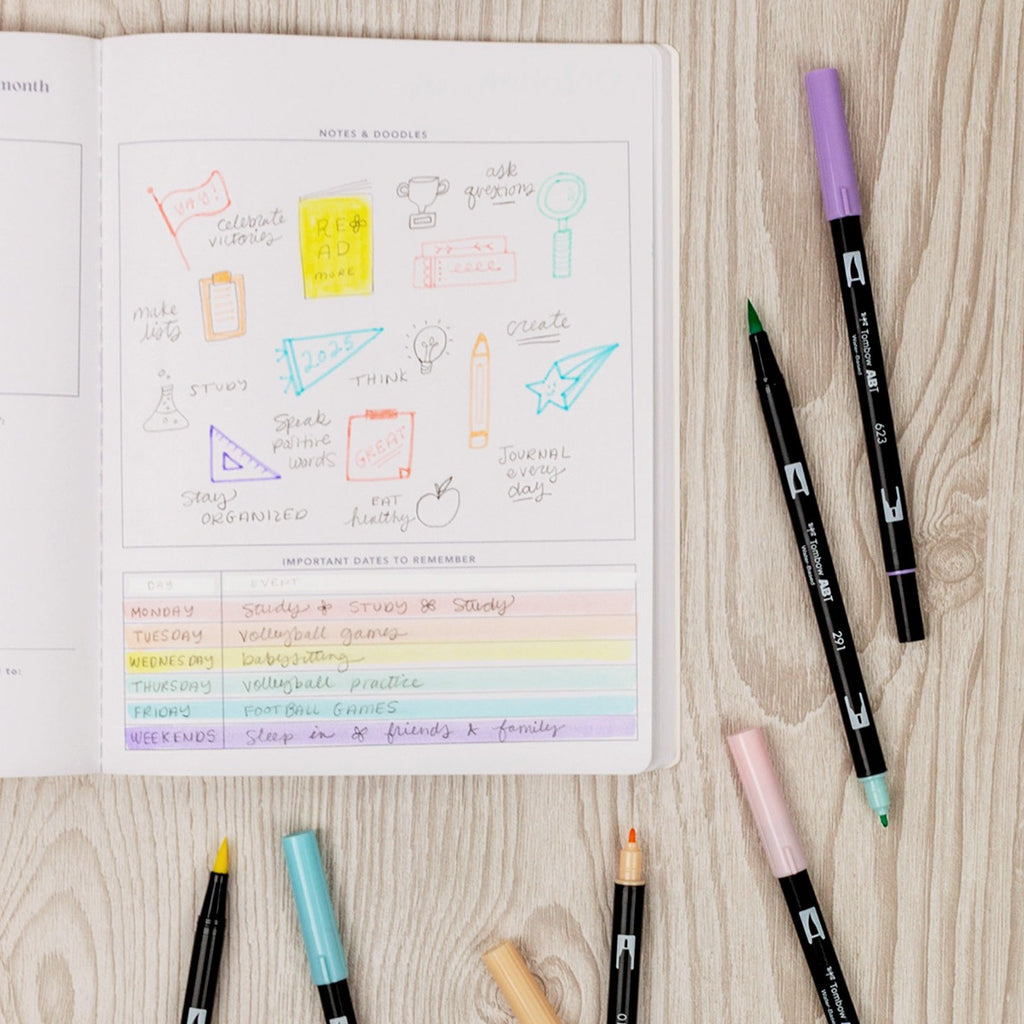 month
NOTES & DOODLES
YAY!
celebrate
victories
READ
MORE
ask
questions
make
lists
2025
THINK
create
STUDY
Speak
positive
words
GREAT
JOURNAL
every
day
Stay
ORGANIZED
EAT
healthy
IMPORTANT DATES TO REMEMBER
DAY EVENT
MONDAY Study STUDY Study
TUESDAY volleyball games
WEDNESDAY babysitting
THURSDAY volleyball practice
FRIDAY FOOTBALL GAMES
WEEKENDS Sleep in friends & family
to:
Tombow ABT
Water-Based
623
Tombow ABT
Water-Based
291
Tombow
Water-Based